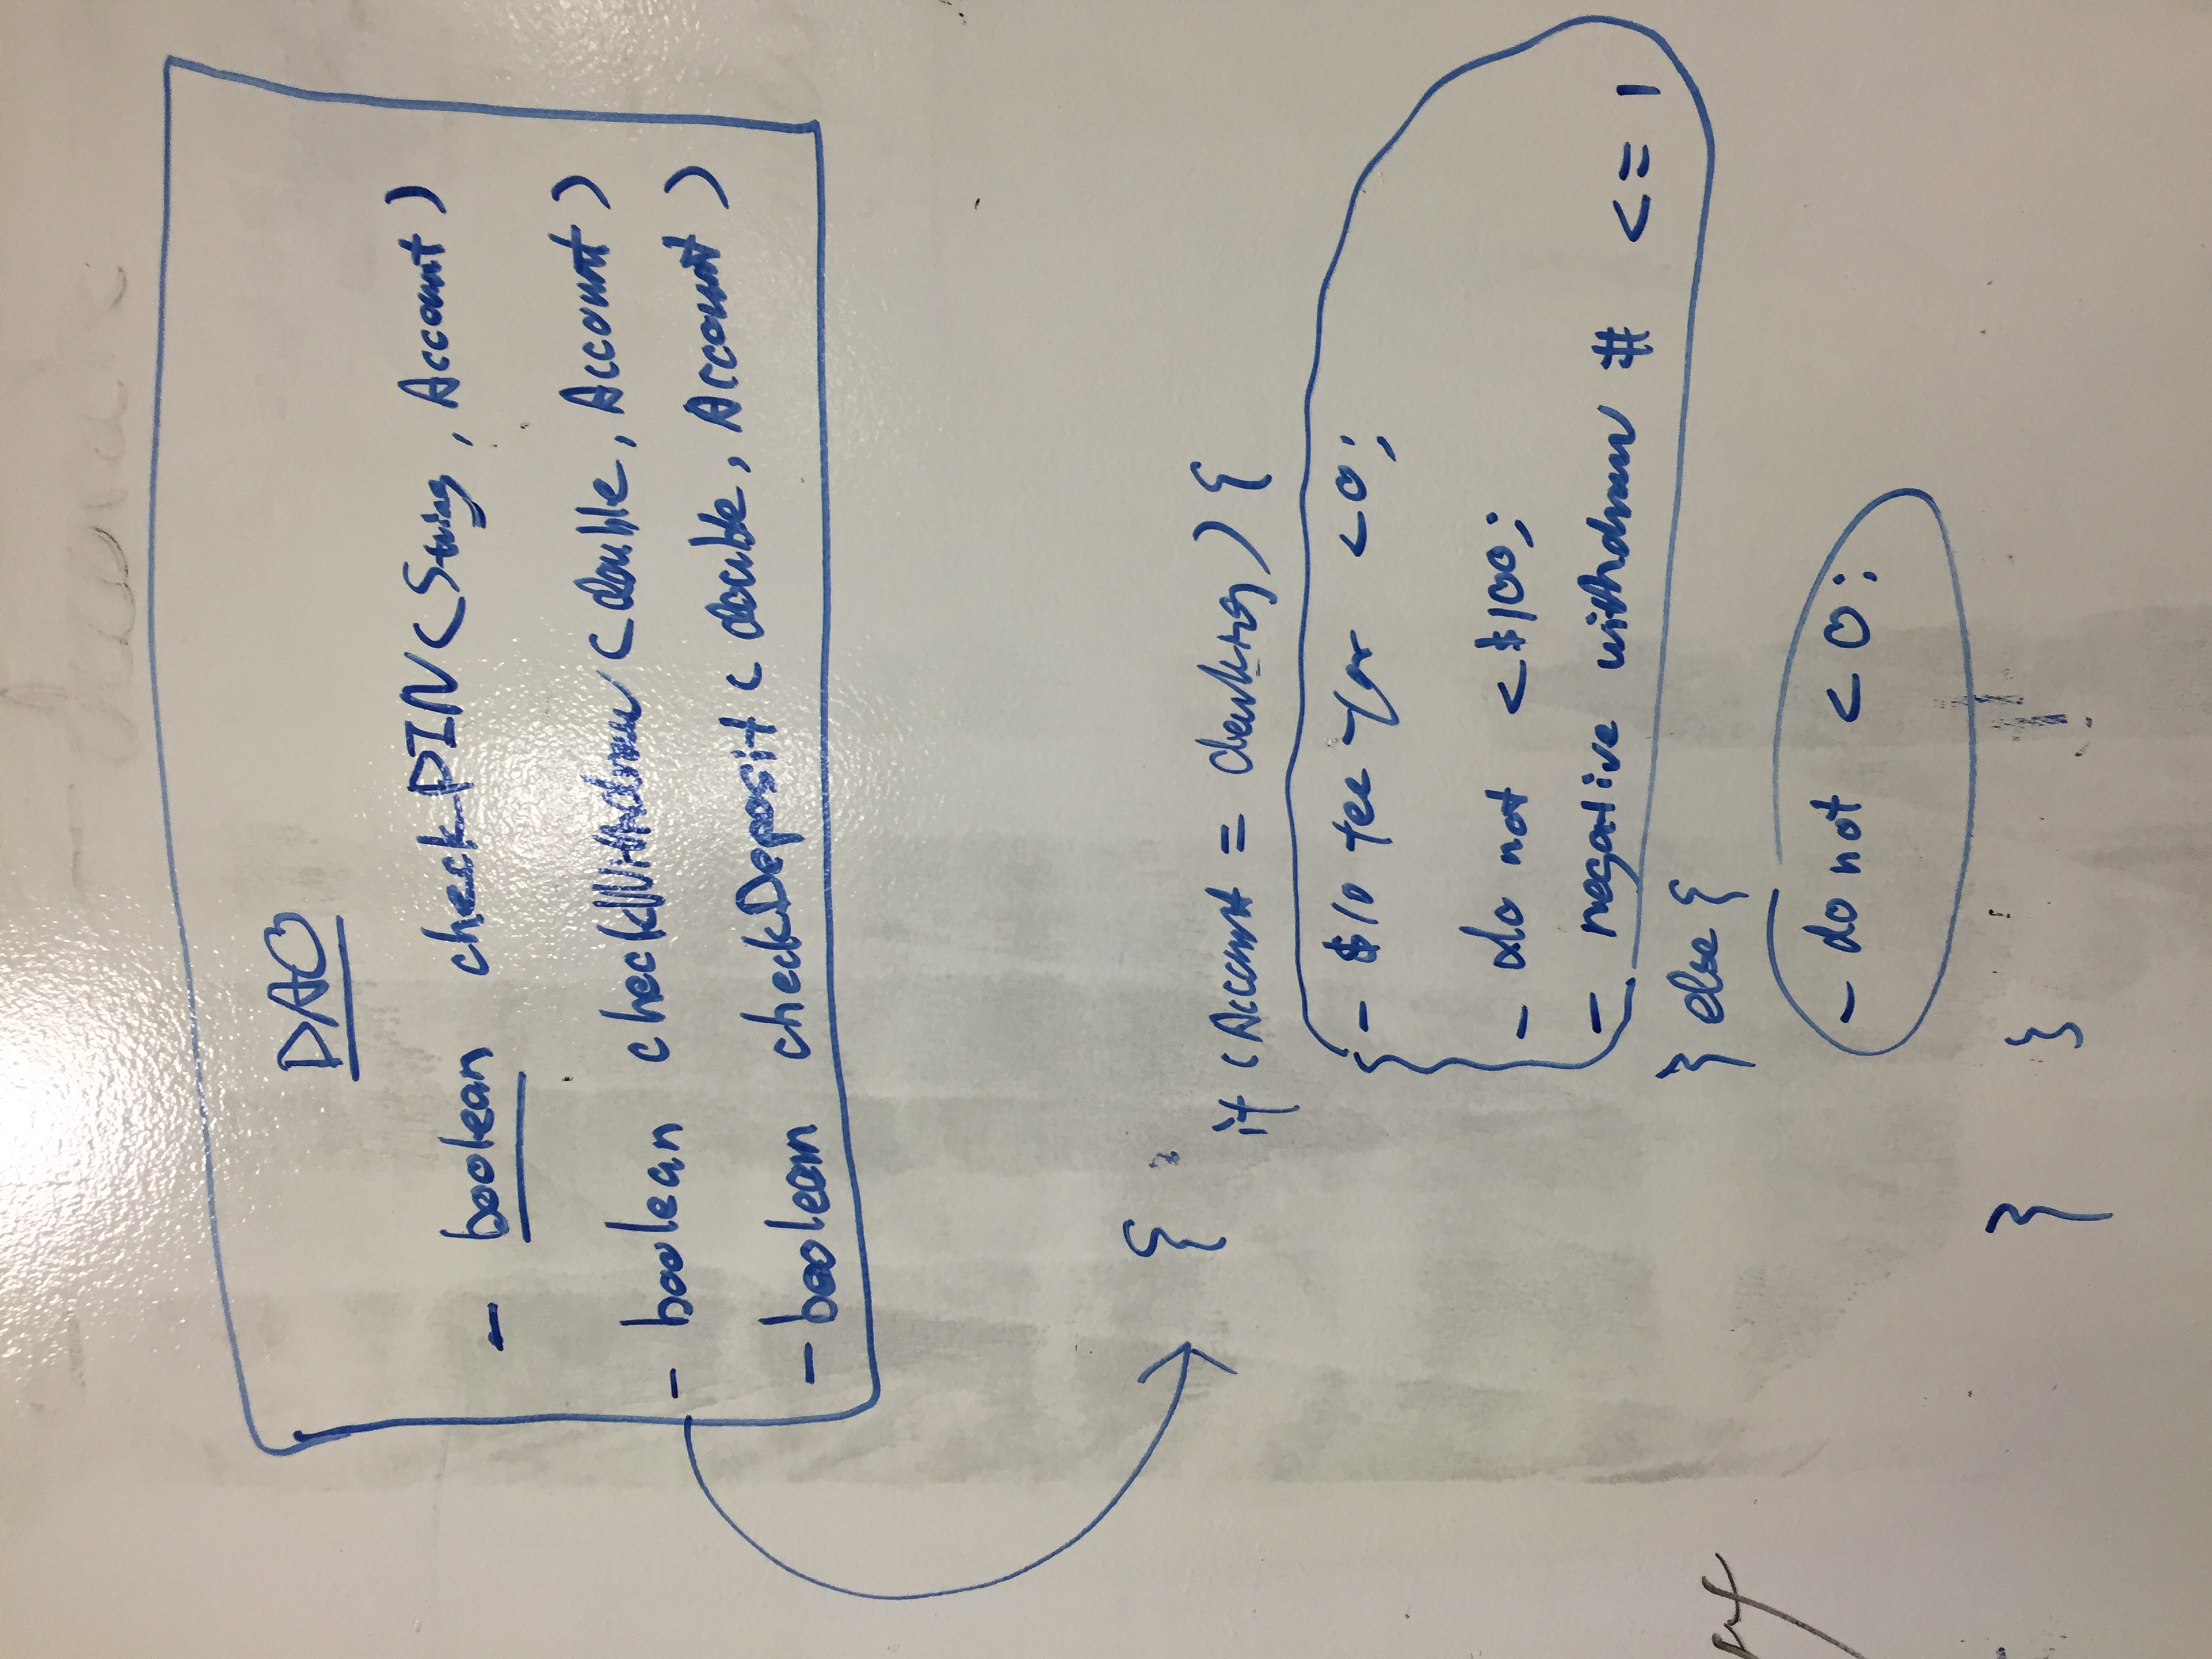 DAO
- boolean checkPIN (String, Account)
- boolean checkWithdraw (double, Account)
- boolean checkDeposit (double, Account)
{
if (Account = checking) {
- $10 fee for <0;
- do not <$100;
- negative withdraw # <= 1
} else {
- do not < 0;
} }